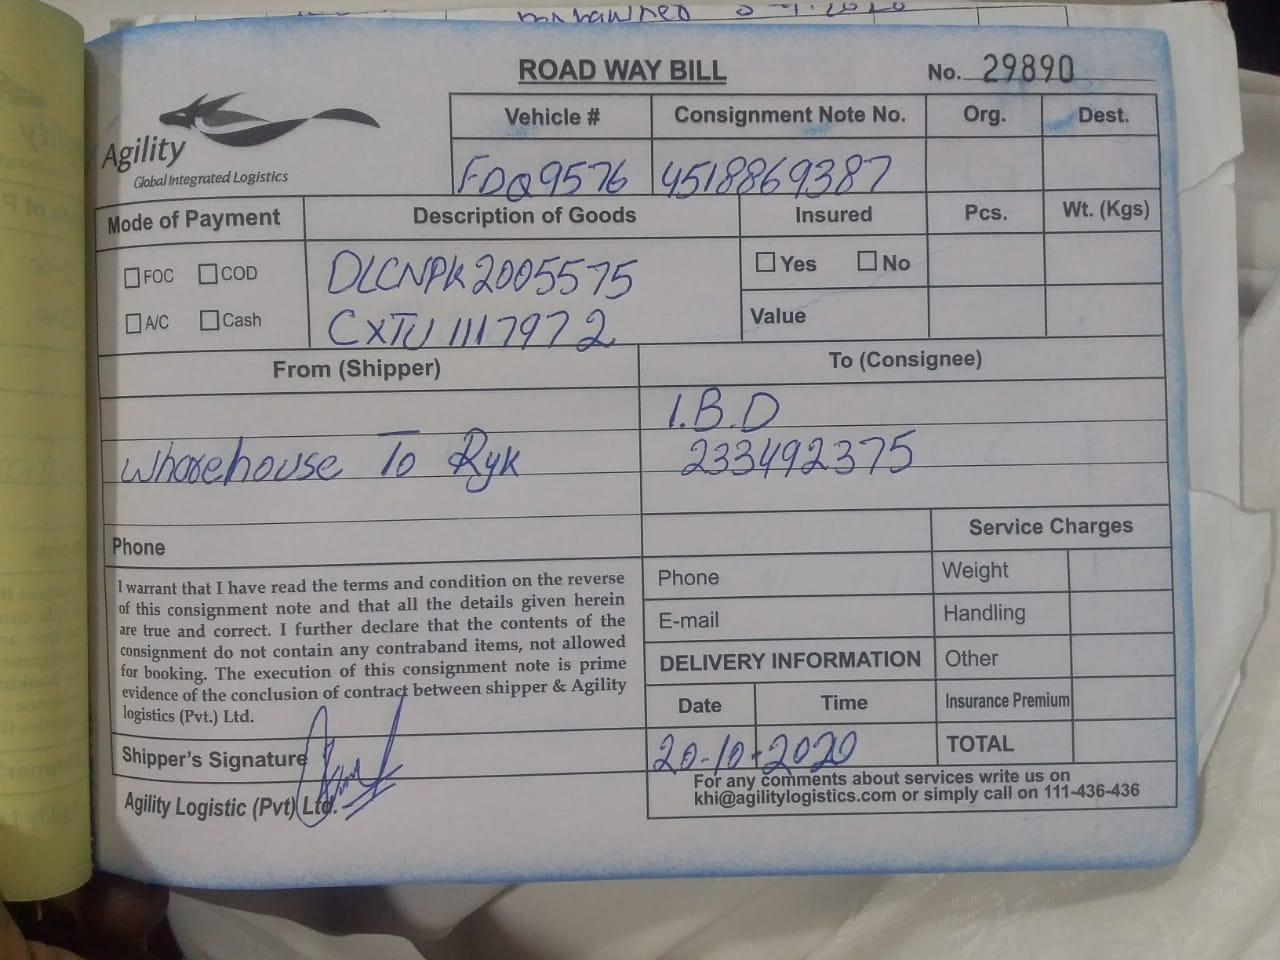 ROAD WAY BILL
No. 29890
Agility
Global Integrated Logistics
Vehicle # Consignment Note No. Org. Dest.
FDQ9576 4518869387
Mode of Payment Description of Goods Insured Pcs. Wt. (Kgs)
FOC COD DLCNPK2005575 Yes No
A/C Cash CXTU 1117972 Value
From (Shipper) To (Consignee)
I.B.D
Wharehouse To Ryk 233492375
Service Charges
Phone
I warrant that I have read the terms and condition on the reverse
of this consignment note and that all the details given herein
are true and correct. I further declare that the contents of the
consignment do not contain any contraband items, not allowed
for booking. The execution of this consignment note is prime
evidence of the conclusion of contract between shipper & Agility
logistics (Pvt.) Ltd.
Phone Weight
E-mail Handling
DELIVERY INFORMATION Other
Date Time Insurance Premium
Shipper's Signature 20-10-2020 TOTAL
Agility Logistic (Pvt) Ltd.
For any comments about services write us on
khi@agilitylogistics.com or simply call on 111-436-436